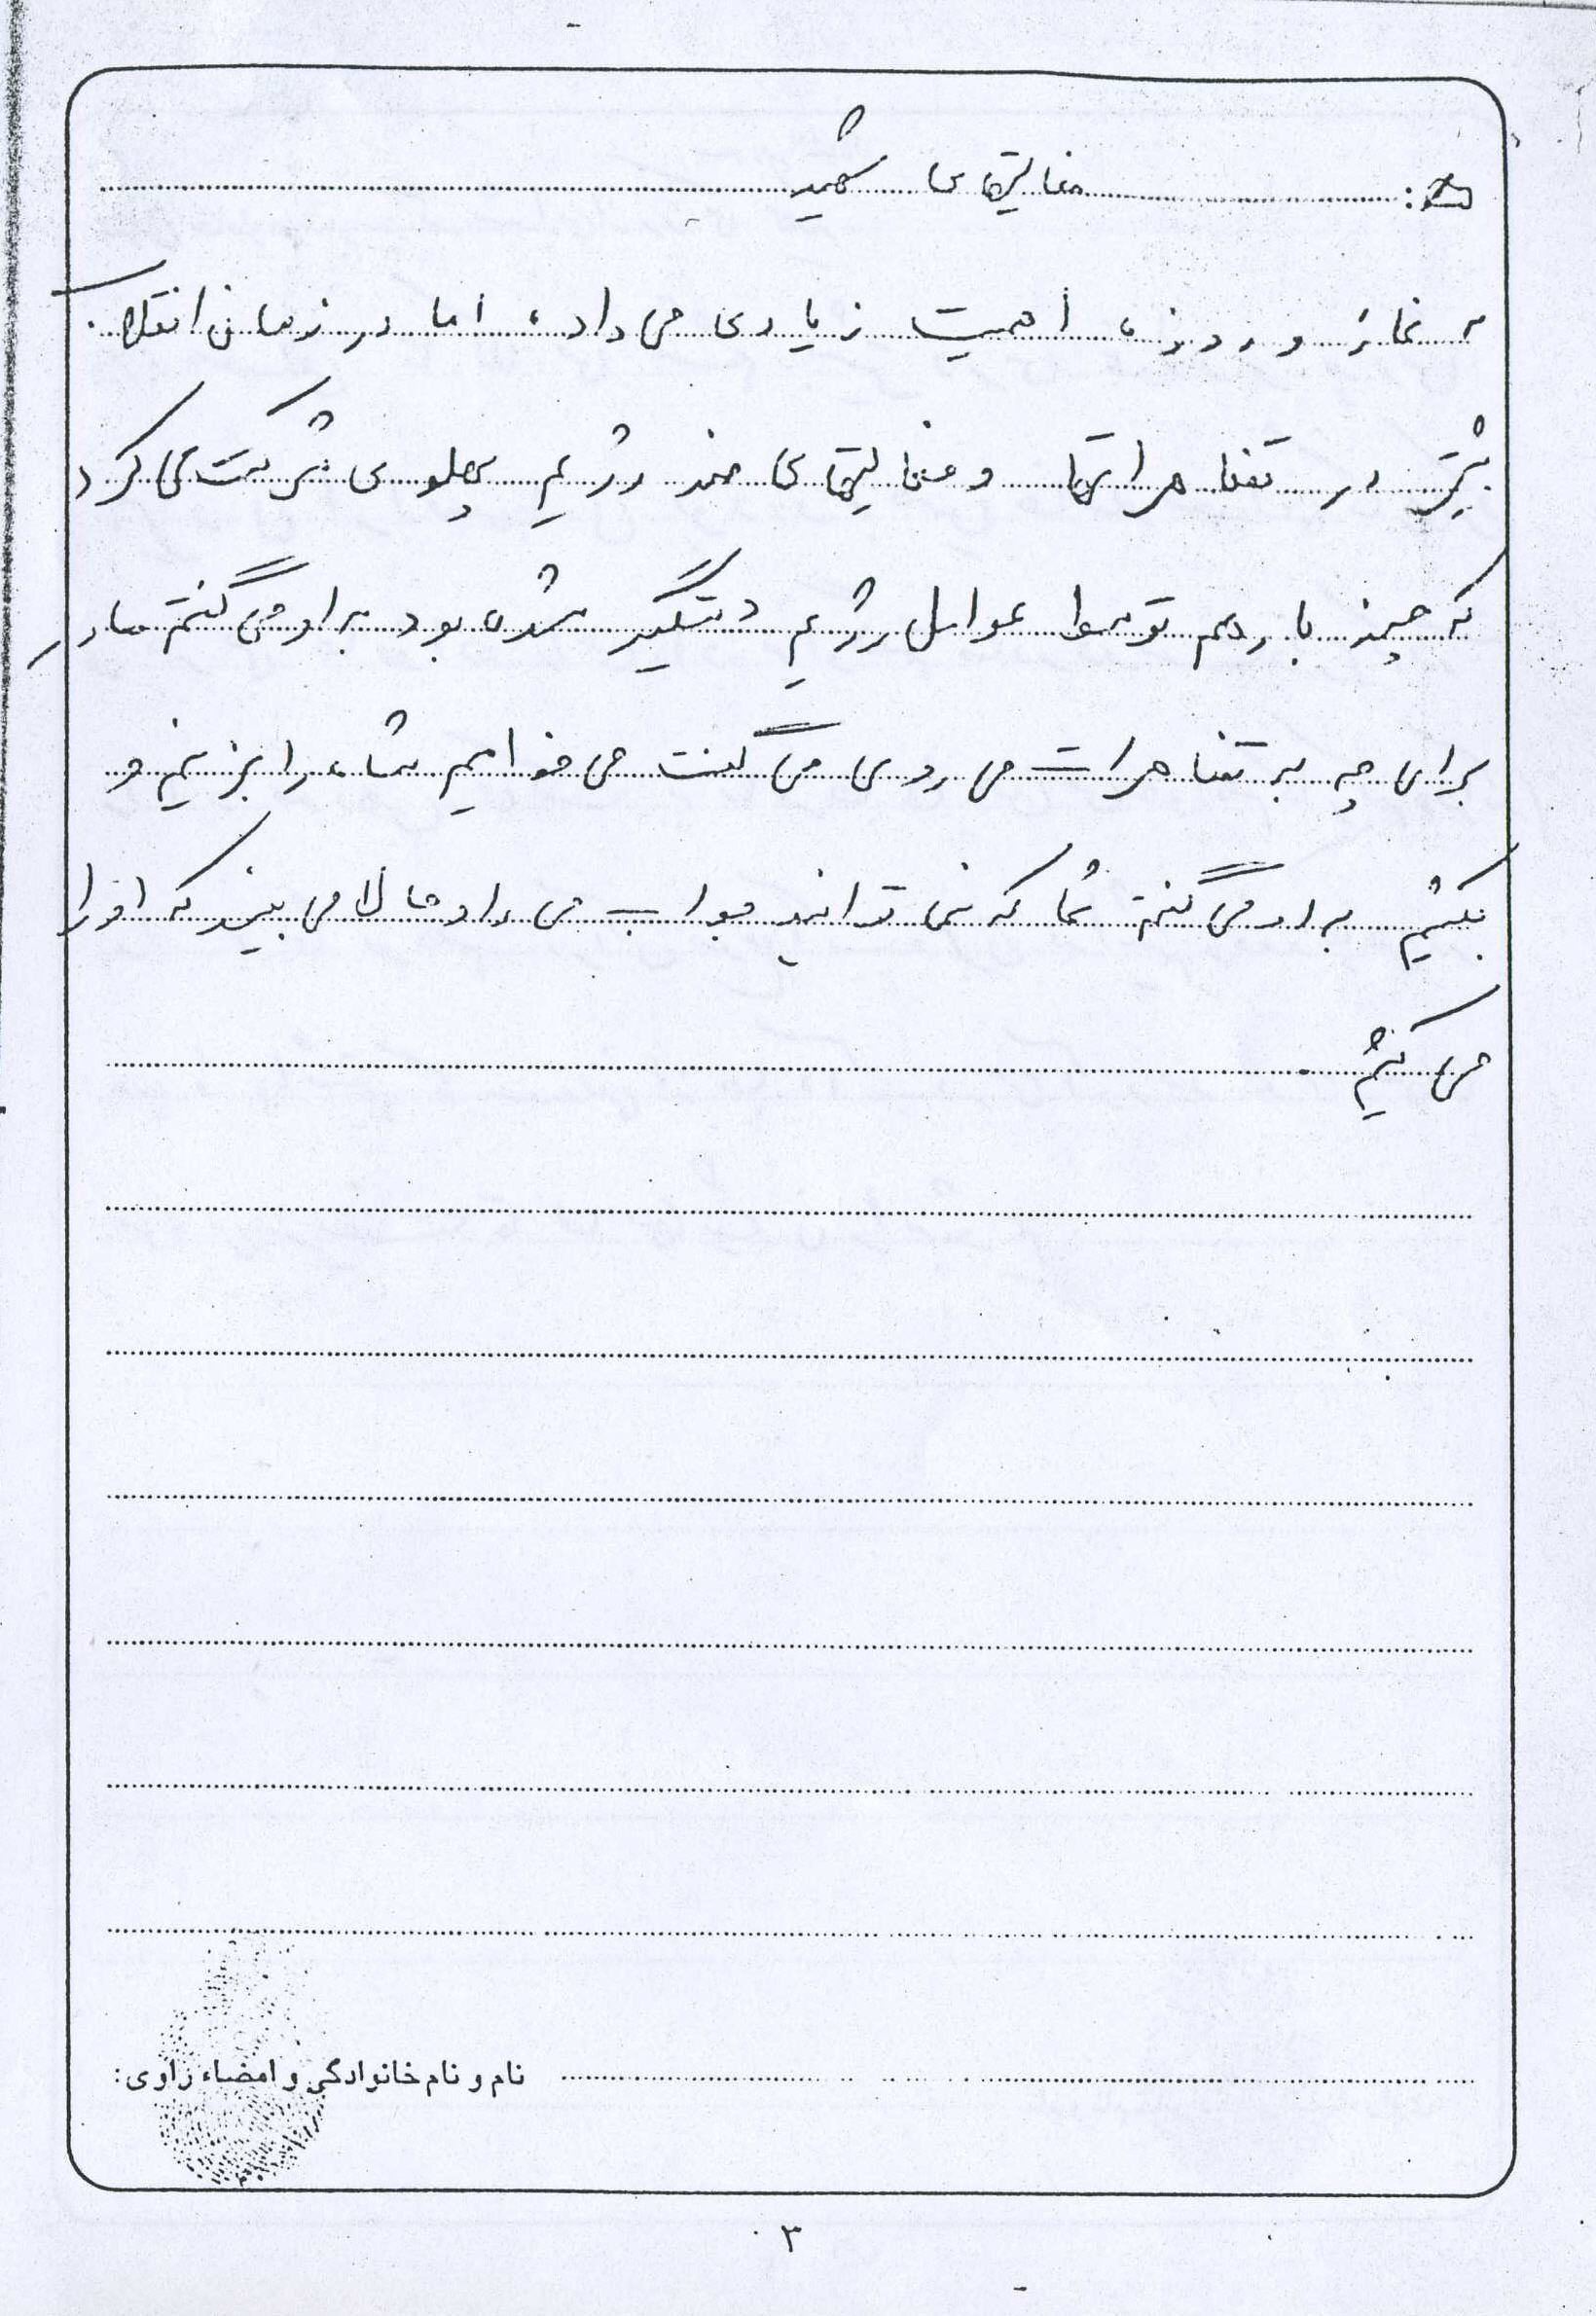 فعالیتهای شهید
به نماز و روزه اهمیت زیادی می داد، اما در زمان انقلاب
بیشتر در تظاهراتها و فعالیتهای ضد رژیم پهلوی شرکت می کرد
که چند بار هم توسط عوامل رژیم دستگیر شده بود به او می گفتم مادر
برای چه به تظاهرات می روی می گفت می خواهیم شاه را بزنیم و
بکشیم به او می گفتم شما که نمی توانید جواب می داد حالا می بیند که او را
می کشیم .
نام و نام خانوادگی و امضاء راوی:
۳